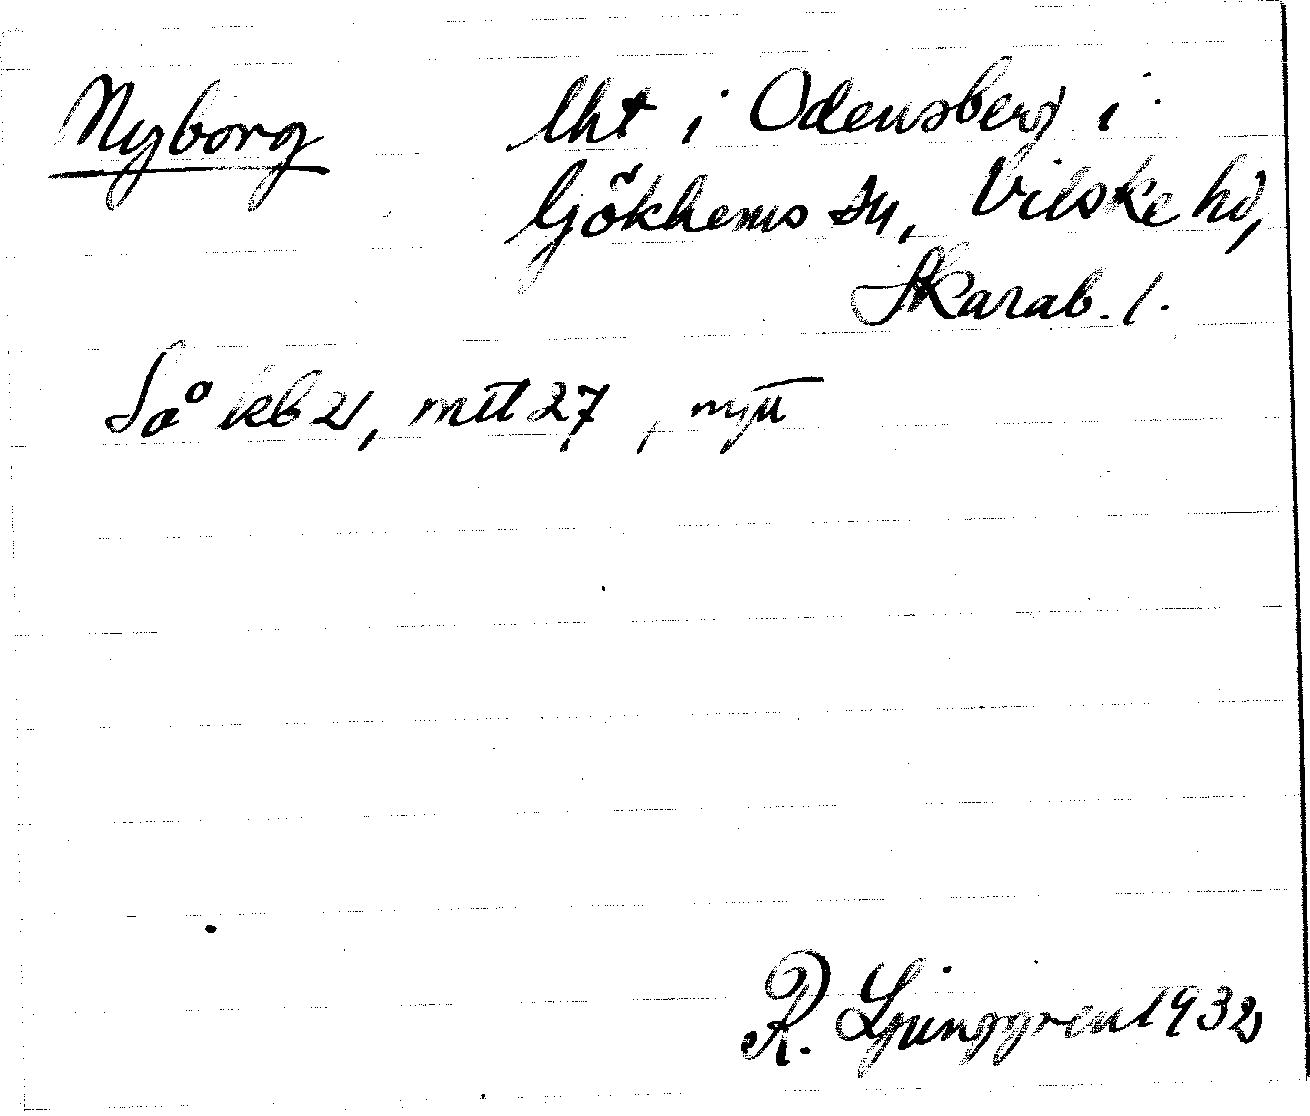 Nyborg lht i Odensberg i
Gökhems sn, Vilske hd,
Skarab. l.
Så kb 21, mtl 27, njtt
R. Ljunggren 1932